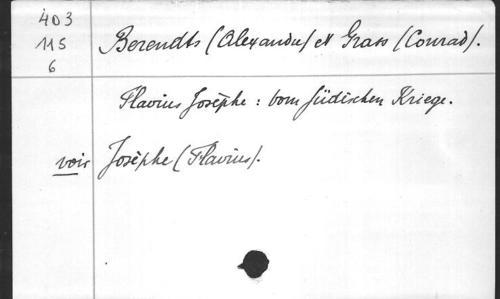 403
115
6
Berendts (Alexandre) et Grass (Conrad).
Flavius Josèphe : vom Jüdischen Kriege.
voir Josèphe (Flavius).